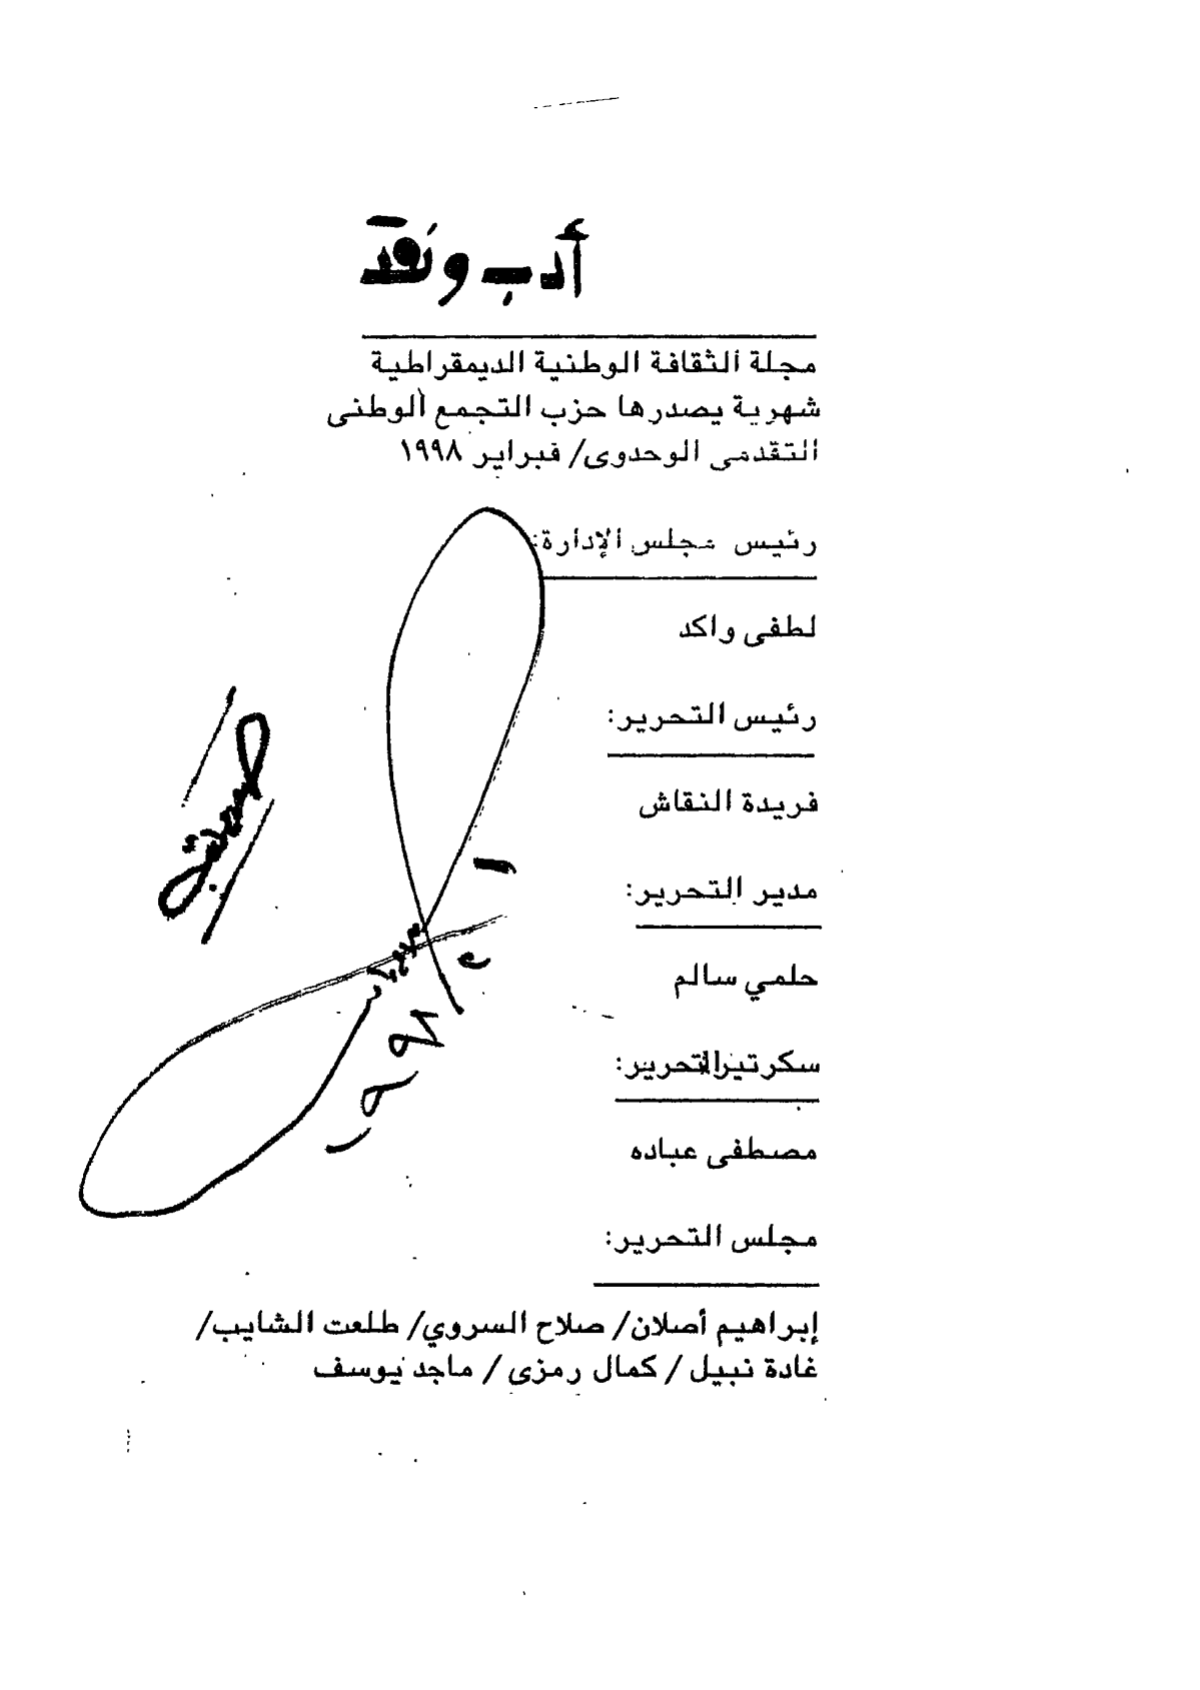 أدب ونقد
مجلة الثقافة الوطنية الديمقراطية
شهرية يصدرها حزب التجمع الوطنى
التقدمى الوحدوى/ فبراير ١٩٩٨
رئيس مجلس الإدارة:
لطفى واكد
رئيس التحرير:
فريدة النقاش
مدير التحرير:
حلمي سالم
سكرتير التحرير:
مصطفى عباده
مجلس التحرير:
إبراهيم أصلان/ صلاح السروي/ طلعت الشايب/
غادة نبيل/ كمال رمزى/ ماجد يوسف